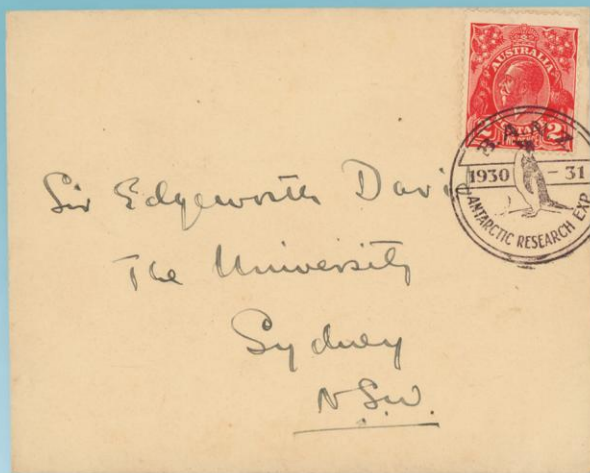 AUSTRALIA
2 2
B.A.N.Z.
1930 - 31
ANTARCTIC RESEARCH EXP
Sir Edgeworth Davi
The University
Sydney
N.S.W.